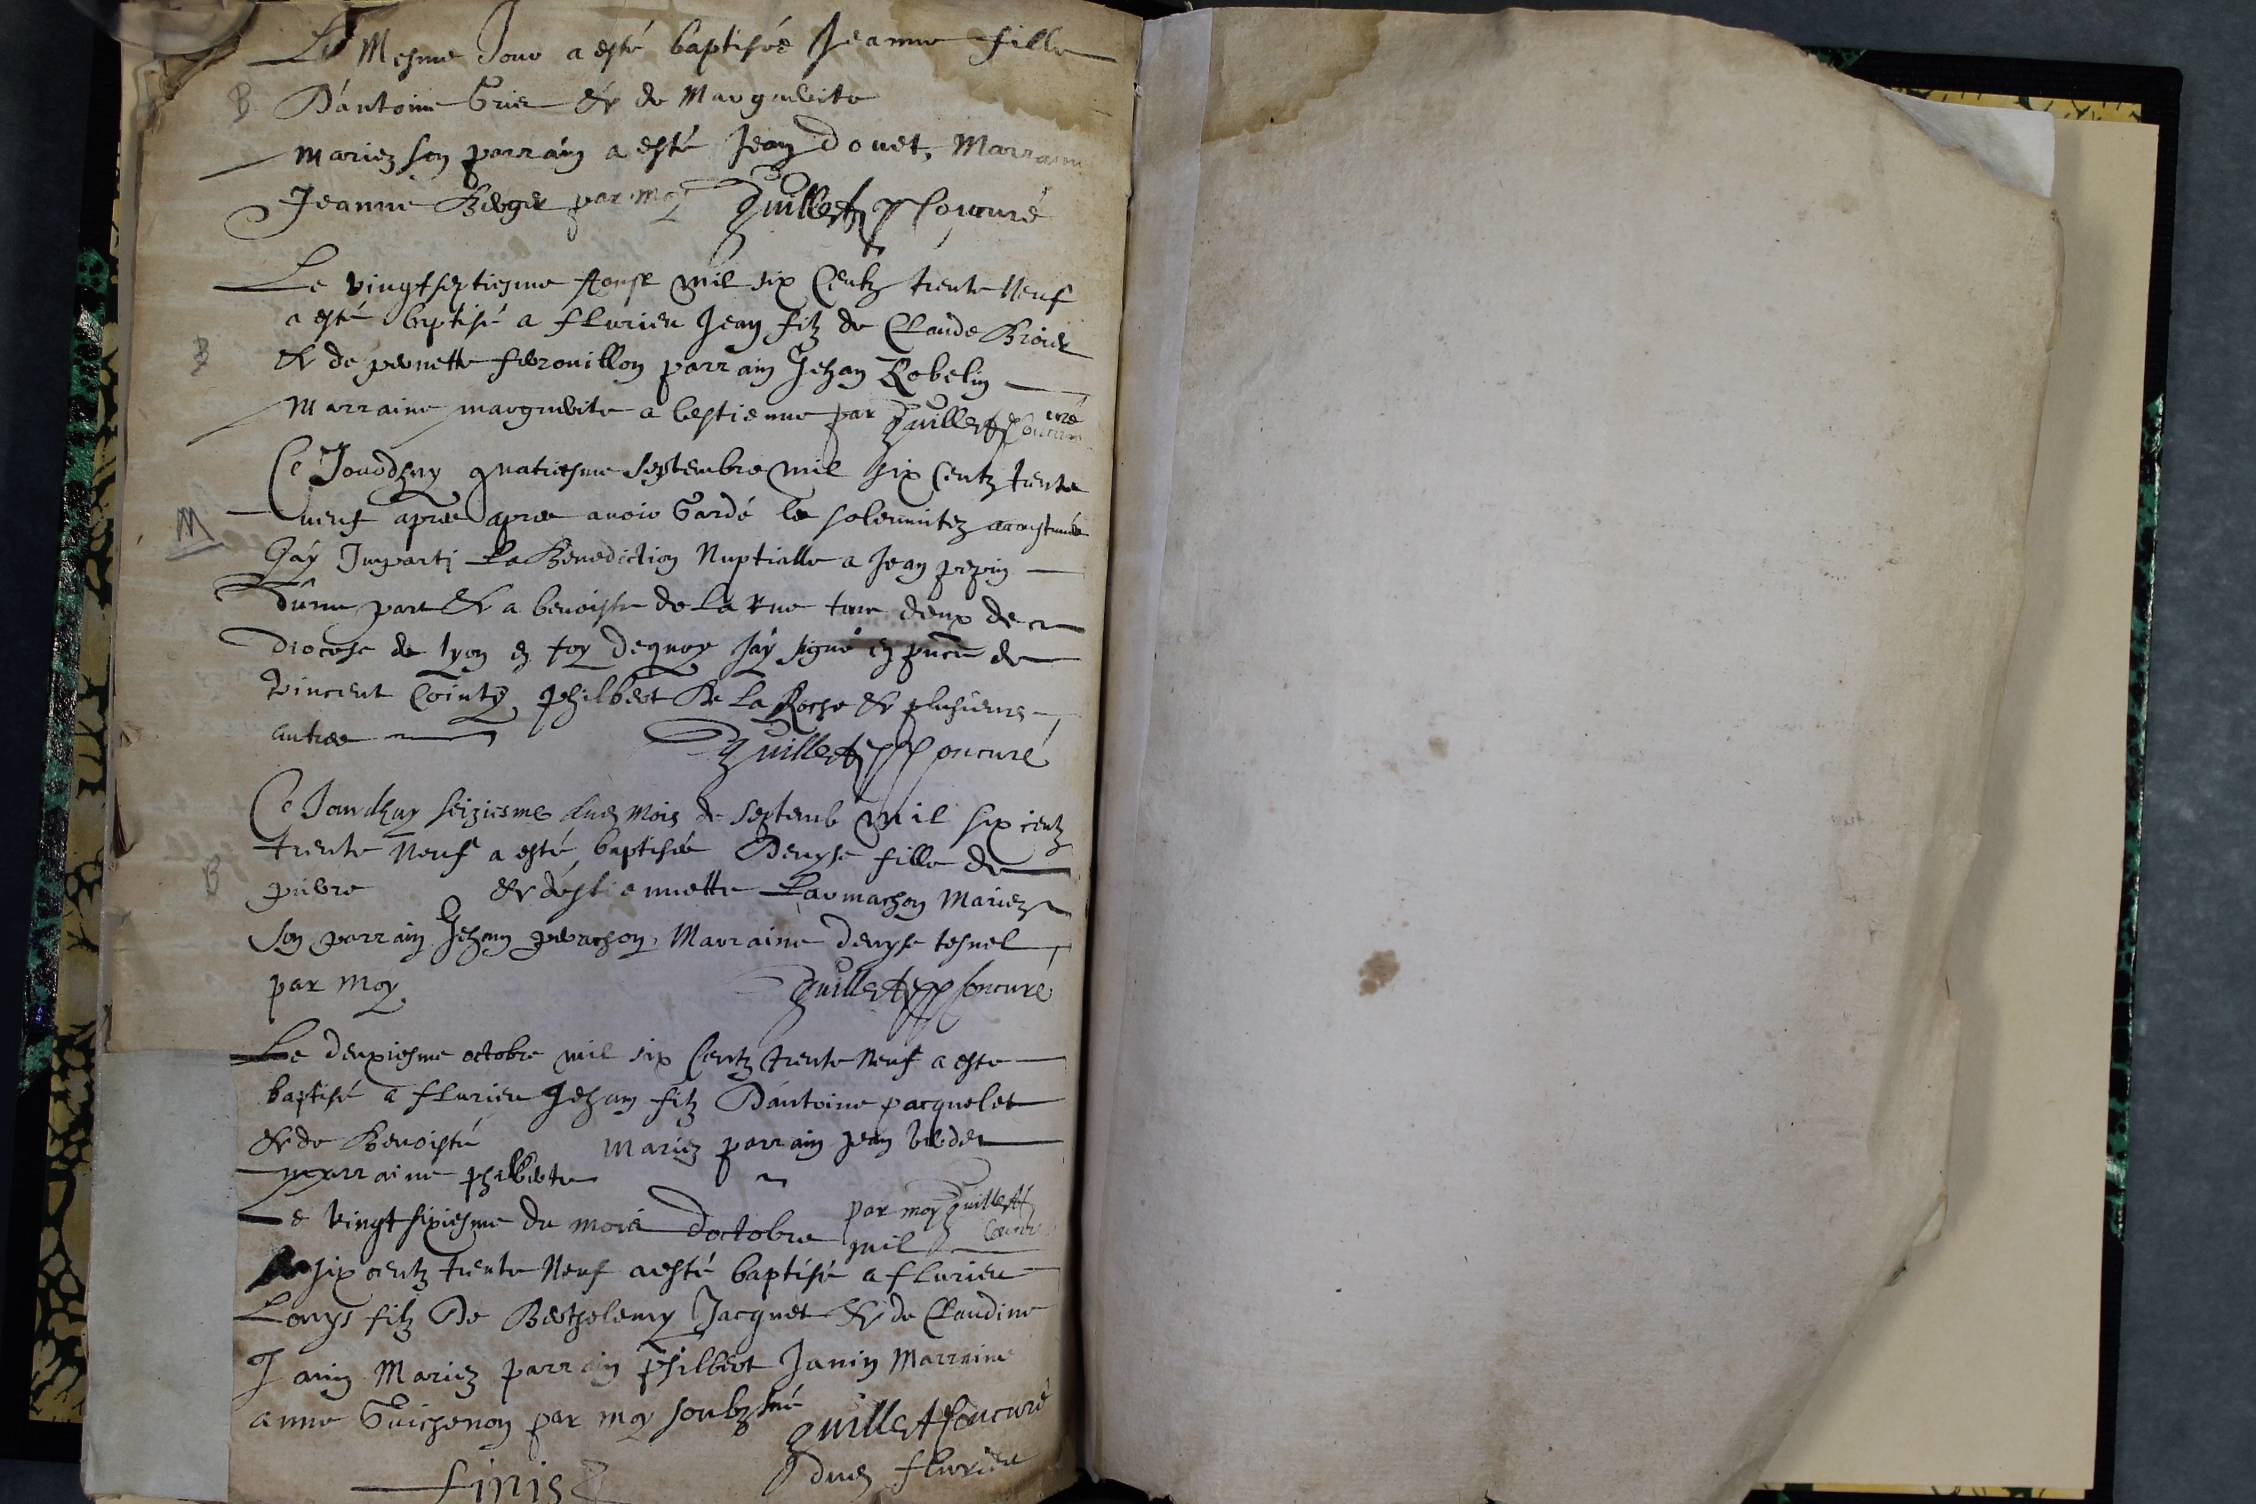 Le Mesme Jour a esté baptisée Jeanne fille
B
D'antoine Grier & de Marguerite
mariez son parrain a esté Jean douet, Marraine
Jeanne Berger par moy Guillet soucuré
Le vingtseptiesme Aoust mil six Centz trente Neuf
a esté baptisé a flurieu Jean filz de Claude Broier
B
& de pernette ferrouillon parrain Jehan Gobelin
Marraine marguerite a bestienne par Guillet curé
Ce Jourdhuy quatriesme Septembre mil six Centz trente
M
neuf apres apres avoir Gardé les solemnitez accoustumées
Jáy Imparti La Benediction Nuptialle a Jean pepin
D'une part & a benoiste de La Rue tous deux de ce
Diocese de lyon en foy dequoy Jáy signé en pnce de
Vincent Cointy, philbert De La Roche & plusieurs
autres Guillet soucuré
Ce Jourdhuy seiziesme dud Mois de Septemb mil six centz
trente Neuf a esté baptisée Denyse fille de
B
pierre & déstiennette Larmachon Mariez
son parrain Jehan perrachon, Marraine denyse tesnel
par Moy Guillet soucuré
Le deuxiesme octobre mil six Centz trente Neuf a este
baptisé a flurieu Jehan filz D'antoine pacquelet
& de Benoiste Mariez parrain Jean
marraine philberte
par moy Guillet
Le vingtsixiesme du mois doctobre mil
six centz trente Neuf a esté baptisé a flurieu
Louys filz De Berthelemy Jacquet & de Claudine
Janin Mariez parrain philbert Janin Marraine
anne Guichenon par moy soubzsné
Guillet soucuré
dud flurieu
finis